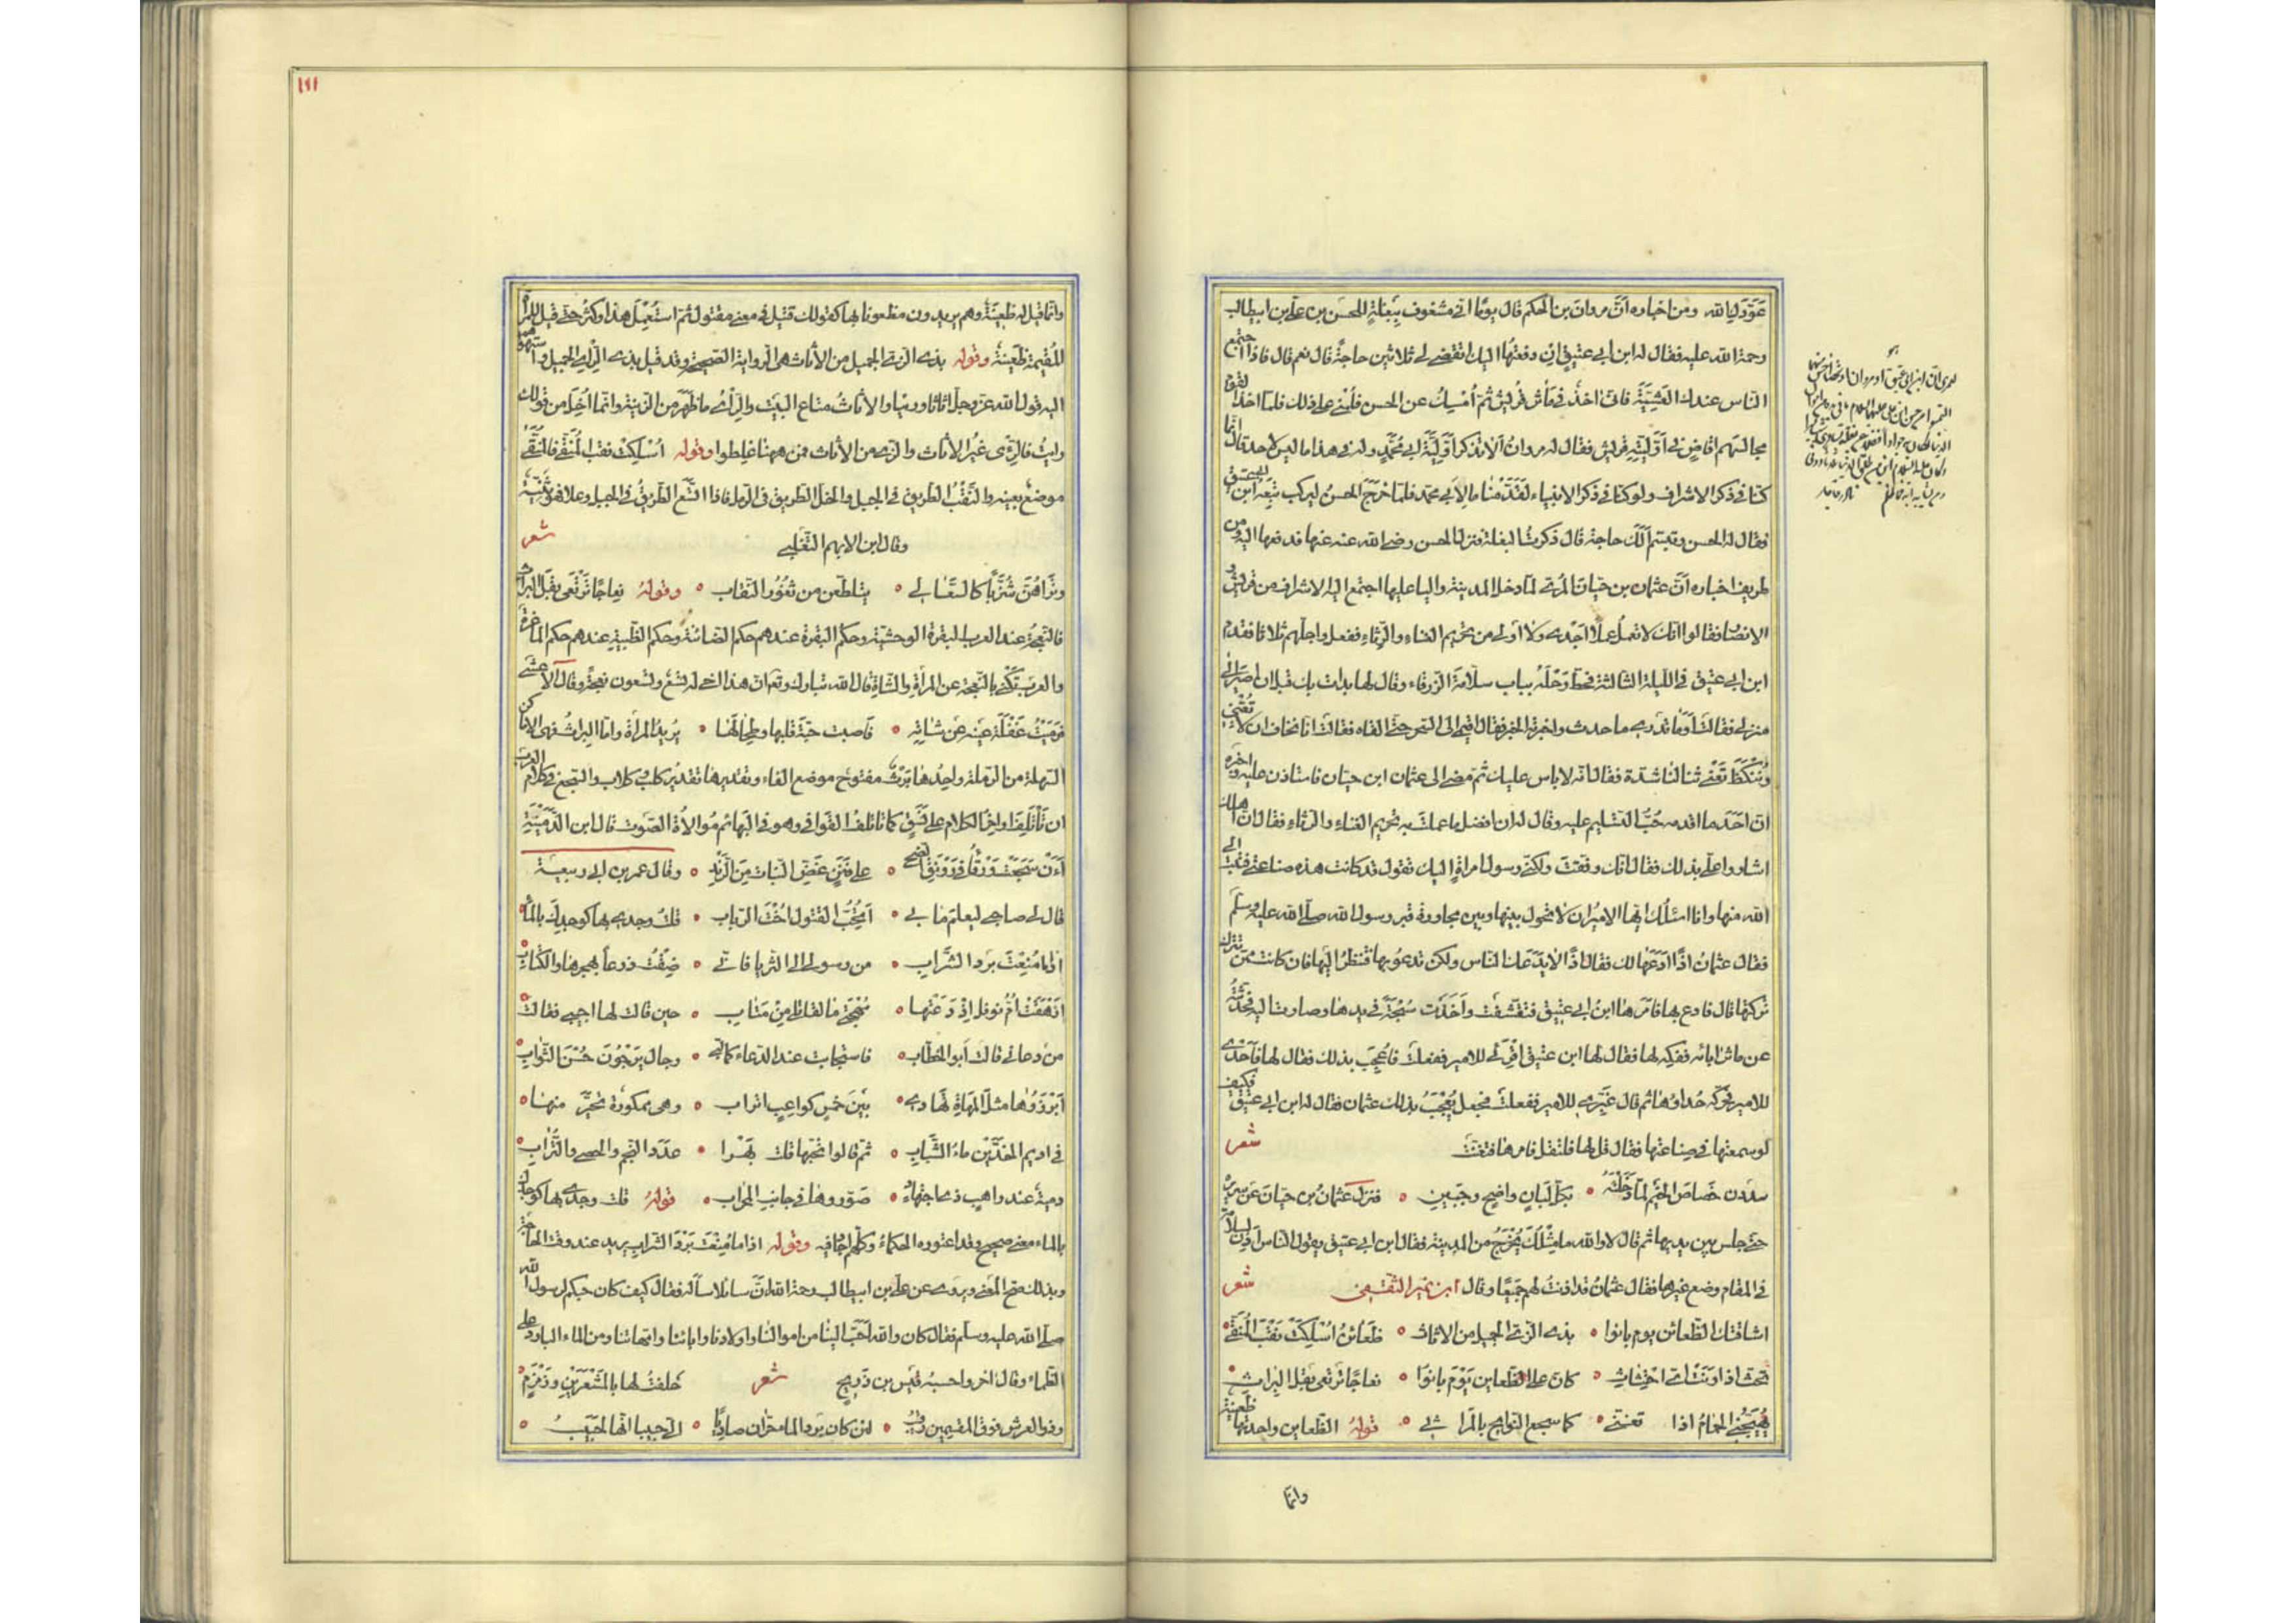 عَوَّدَنِا الله ومن اخباره انَّ مروان بن الحكم قال يومًا انى مشغوف بِبَغلةٍ للحسن بن على بن ابيطالب
رحمة الله عليه فقال له ابن ابى عتيق اِن دفعتُها اليك اتقضى لى ثلاثين حاجةً قال نعم قال فاذا اجتمع
الناس عندك العَشِيّةَ فانى اٰخذٌ فى مآثر قُريش ثم اُمْسِكُ عن الحسن فَلُمْنى على ذلك فلما اخذ القوم
مجالسهم افاض فى اَوَّليّةِ قريش فقال له مروان اَلا تذكر اَوَّليّةَ ابى مُحَمَّدٍ وله فى هذا ما ليس لاحد قال انما
كنّا فى ذكر الاشراف ولو كنّا فى ذكر الانبياء لقَدَّمْنا ما لِاَبى محمّد فلمّا خَرَجَ الحسنُ ليركب تَبِعَه ابن ابى عتيق
فقال له الحسن وتبسّم اَلَكَ حاجة قال ذكرتُ البغلة فنزل الحسن رضى الله عنه عنها فدفعها اليه ومن
طريف اخباره انَّ عثمان بن حيّان المُرّى لمّا دخل المدينة واليا عليها اجتمع اليه الاشراف من قريش و
الانصار فقالوا انّك لا تعملُ عملًا اَجْدى ولا اَولى من تحريم الغناء والرِثاء ففعل واجلهم ثلاثا فقدم
ابن ابى عتيق فى الليلة الثالثة فحطّ رَحْلَهُ بباب سلّامةَ الزرقاء وقال لها بدأت بك قبل ان اصير الى
منزلى فقالت اَوَما تَدرى ما حدث واخبرته الخبر فقال اقيمى الى السَحَر حتى القاه فقالت انا نخاف ان لا تُغْنى
ونُنْكَظَ تغنى شيئا لنا شدة فقال انه لا باس عليك ثم مضى الى عثمان ابن حيّان فاستأذن عليه واخبره
انّ اَحَدَ ما اقدمه حُبُّ التسليم عليه وقال له ان افضل ما عملت به تحريم الغناء والرثاء فقال انّ اهلك
اشاروا علىّ بذلك فقال انّك وفّقت ولكنّى رسول امرأةٍ اليك تقول قد كانت هذه صناعتى فتبت الى
الله منها وانا اسئَلُك ايها الامير ان لا تحول بينها وبين مجاورة قبر رسول الله صلى الله عليه وسلّم
فقال عثمانُ اذًا اَدَعَها لك فقال اذًا لا يَدَعَك الناس ولكن تدعو بها فتنظرُ اليها فان كانت ممّن تترك
تركتَها قال فادع بها فامرها ابنُ ابى عتيق فتقشّفت واَخَذَت سُبْحَةً فى يدها وصارت اليه فحدّثته
عن مآثر اٰبائه ففكه لها فقال لها ابن عتيق اقْرَئى للامير ففعلت فاُعْجِبَ بذلك فقال لها فاَحْدى
للامير فحرّكه حُداؤها ثم قال غَيّرى للامير ففعلت فجعل يُعْجَبُ بذلك عثمان فقال له ابن ابى عتيق فكيف
لو سمعتها فى صِناعتها فقال قل لها فلتقل فامرها فتغنّت شعر
سددن خَصاصَ الخَيم لمّا دَخَلْنَهُ ٥ بكلّ لَبانٍ واضحٍ وجَبينِ ٥ فنزل عثمانُ بن حيّان عن سريره
حتى جلس بين يديها ثم قال لا والله ما مِثْلُكَ يُخْرَجُ من المدينة فقال ابن ابى عتيق يقول الناس اَذِن لسلّامة
فى المقام ومنع غيرها فقال عثمان قد اذنتُ لهم جميعًا وقال ابن نمير الثّقفى شعر
اشاقتك الظّعائن يوم بانوا ٥ بذى الزىّ الجميل من الاثاث ٥ ظَعائنُ اُسْلِكَتْ نَقْبَ المُنَقّى
تحثّ اذا وَنَتْ اىّ احْتِثاثِ ٥ كانّ على الظعاين يَوْمَ بانوا ٥ نعاجًا ترتعى بَقْلَ البِراثِ
يُهَيّجُنى الحَمامُ اذا تغنّى ٥ كما سجع النوايح بالمرا ثى ٥ قولهُ الظعاين واحدتها ظعينة
وانما
وانّما قيل له ظَعِينَةٌ وهم يريدون مظعونا بها كقولك قتيل فى معنى مقتول ثم استُعْمِلَ هذا وكثُر حتى قيل للمرأة
المُقيمة ظَعينةٌ وقوله بذى الزىّ الجميل من الاثاث هى الرواية الصحيحة وقد قيل بذى الرِّاْىِ الجميل واشتهى
اليه قول الله عزّ وجلّ اثاثا ورءيا والاثاثُ متاع البيت والرأى ما ظَهَرَ من الزينة وانما اُخِذَ من قولك
رايتُ فالزىّ غيرُ الاثاث والزىّ من الاثاث فمن ههنا غلطوا وقوله اُسْلِكَتْ نقب المُنَقّى فالمُنَقّى
موضعٌ بعينه والنَقْبُ الطريق فى الجبل والخلّ الطريق فى الرمل فاذا اتّسع الطريقُ فى الجبل وعلا فهو ثَنِيّة
وقال ابن الايهم التّغلبى شعر
وتَراهُنّ شُزَّبًا كالسَّعالى ٥ يتطلّعن من ثغُور النقاب ٥ وقولهُ نِعاجًا تَرتَعى بَقْلَ البراث
فالنّعجةُ عند العرب البقرة الوحشيّة وحكمُ البقرة عندهم حكم الضائنة وحكم الظّبية عندهم حكم الماعزة
والعرب تَكْنى بالنّعجة عن المرأةِ والشاةِ قال الله تبارك وتع انّ هذا اخى له تِسْعٌ وتسعون نعجةً وقال الاعشى
فرميتُ غفلة عَيْنه عن شاتِه ٥ فاصبت حبّةَ قلبها وطِحالَها ٥ يُريدُ المرأة وامّا البِراثُ فهى الاماكن
السّهلة من الرّملة واحدها بَرْثٌ مفتوح موضع الفاء وتقديرها تقديرُ كلبٌ وكلاب والسجع فى كلام العرب
ان تَأْتَلِفَ اواخرُ الكلام على نَسَقٍ كما تاتلف القوافى وهو فى البهائم مُوالاةُ الصّوت قال ابن الدُّمَينَةِ
اَءِنْ سَجَعَتْ وَرْقاءُ فى رَوْنَقِ الضُّحى ٥ على فَنَنٍ غَضِّ النّبات مِنَ الرّنْدِ ٥ وقال عمر بن ابى ربيعة
قال لى صاحبى ليعلمَ ما بى ٥ اَتُحِبُّ القتول اُخْتَ الرّباب ٥ قلت وجدى بها كوجدِك بالمآءِ
اذا ما مُنِعْتَ بَردَ الشّرابِ ٥ من رسولى الى الثريا فانّى ٥ ضِقْتُ ذرعاً بهجرها والكتابِ
اَزْهَقَتْ اُمُّ نوفل اِذْ دَعَتْها ٥ مُهْجتى ما لقاتلى مِنْ مَتابِ ٥ حين قالت لها اجيبى فقالتْ
من دعانى قالت اَبو الخطّاب ٥ فاستجابت عند الدعاء كما لبّى ٥ رجال يَرْجُونَ حُسْنَ الثّوابِ
اَبْرَزوُها مثلَ المَهاةِ تَهادى ٥ بَيْنَ خمسٍ كواعبٍ اتراب ٥ وهى ممكورة تحيّر منها
فى اديم الخدّيْنِ ماءُ الشَّبابِ ٥ ثم قالوا تحبّها قلت بَهْرا ٥ عددَ النجم والحصى والتُّرابِ
دميةٌ عند راهبٍ ذى اجتهادٍ ٥ صَوّروها فى جانبِ المحراب ٥ قولهُ قلت وجدى بها كوجدك
بالماء معنى صحيح وقد اعتوره الحكماءُ وكلّهم اجاد فيه وقوله اذا ما مُنِعْتَ بَرْدَ الشراب يريد عند وقت الحاجة
وبذلك صحّ المعنى ويروى عن على بن ابيطالب رحمة الله انّ سائلا سأله فقال كيف كان حبكم لرسول الله
صلى الله عليه وسلّم فقال كان والله اَحَبَّ الينا من اموالنا واولادنا واٰبائنا وامّهاتنا ومن الماء البارد على
الظماء وقال اٰخر واحسبهُ قيس بن ذريحٍ شعر حَلَفتُ لها بالمَشْعَرَيْنِ وزَمْزَمٍ
وذو العرش فوق المقسمين رقيبُ ٥ لئن كان بَردُ الماءِ حرّان صادِيًا ٥ الىّ حبيبا انّها لحَبيبُ ٥
١٦١